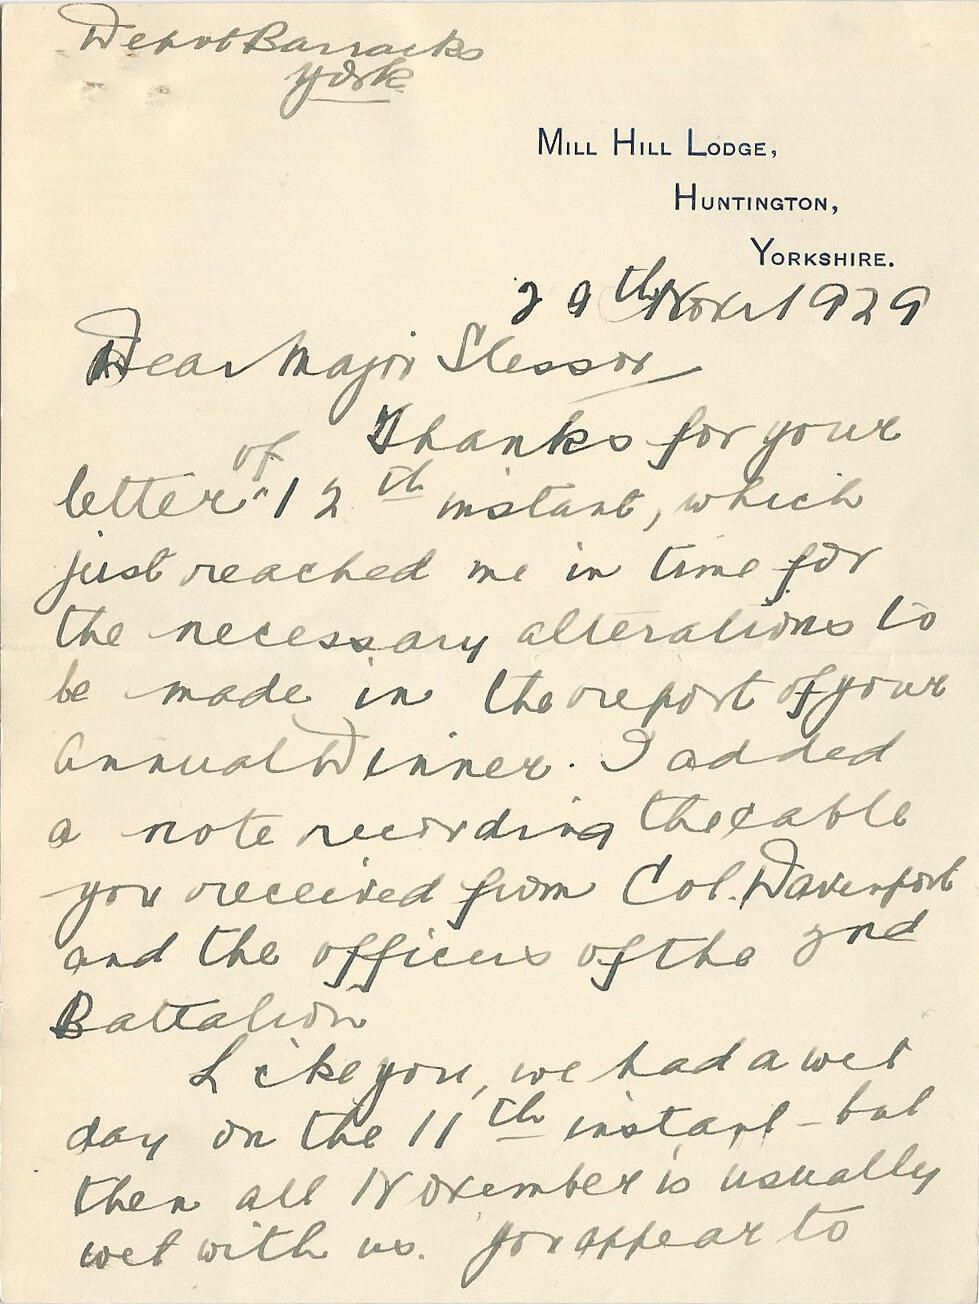 Depot Barracks
York
MILL HILL LODGE,
HUNTINGTON,
YORKSHIRE.
29th Novr 1929
Dear Major Slessor
Thanks for your
of
letter ^ 12th instant, which
just reached me in time for
the necessary alterations to
be made in the report of your
Annual Dinner. I added
a note recording the cable
you received from Col. Davenport
and the officers of the 2nd
Battalion
Like you, we had a wet
day on the 11th instant - but
then all November is usually
wet with us. You appear to